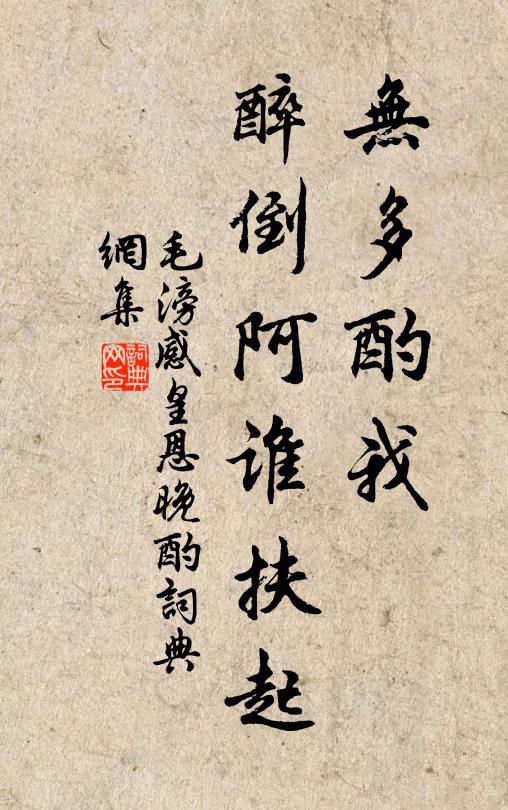 無多酌我
醉倒阿誰扶起
毛滂感皇恩晚酌詞典
網集
詞典
网印